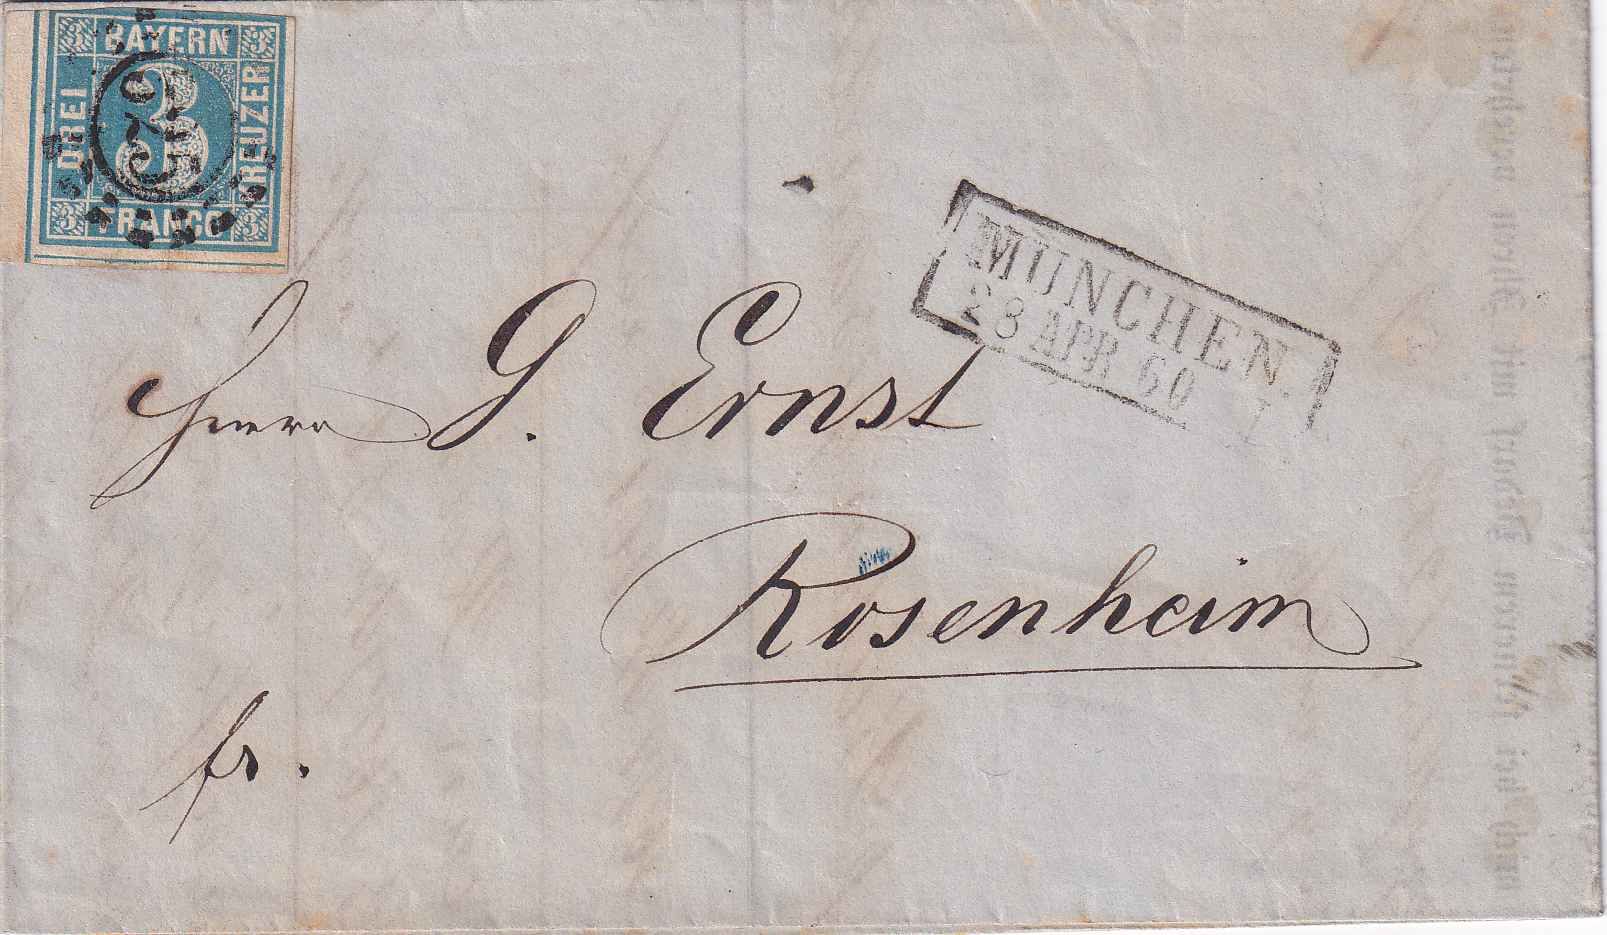 3 BAYERN 3
DREI
3
KREUZER
3 FRANCO 3
MÜNCHEN
28 APR 60 I
Herrn G. Ernst
Rosenheim
fr.